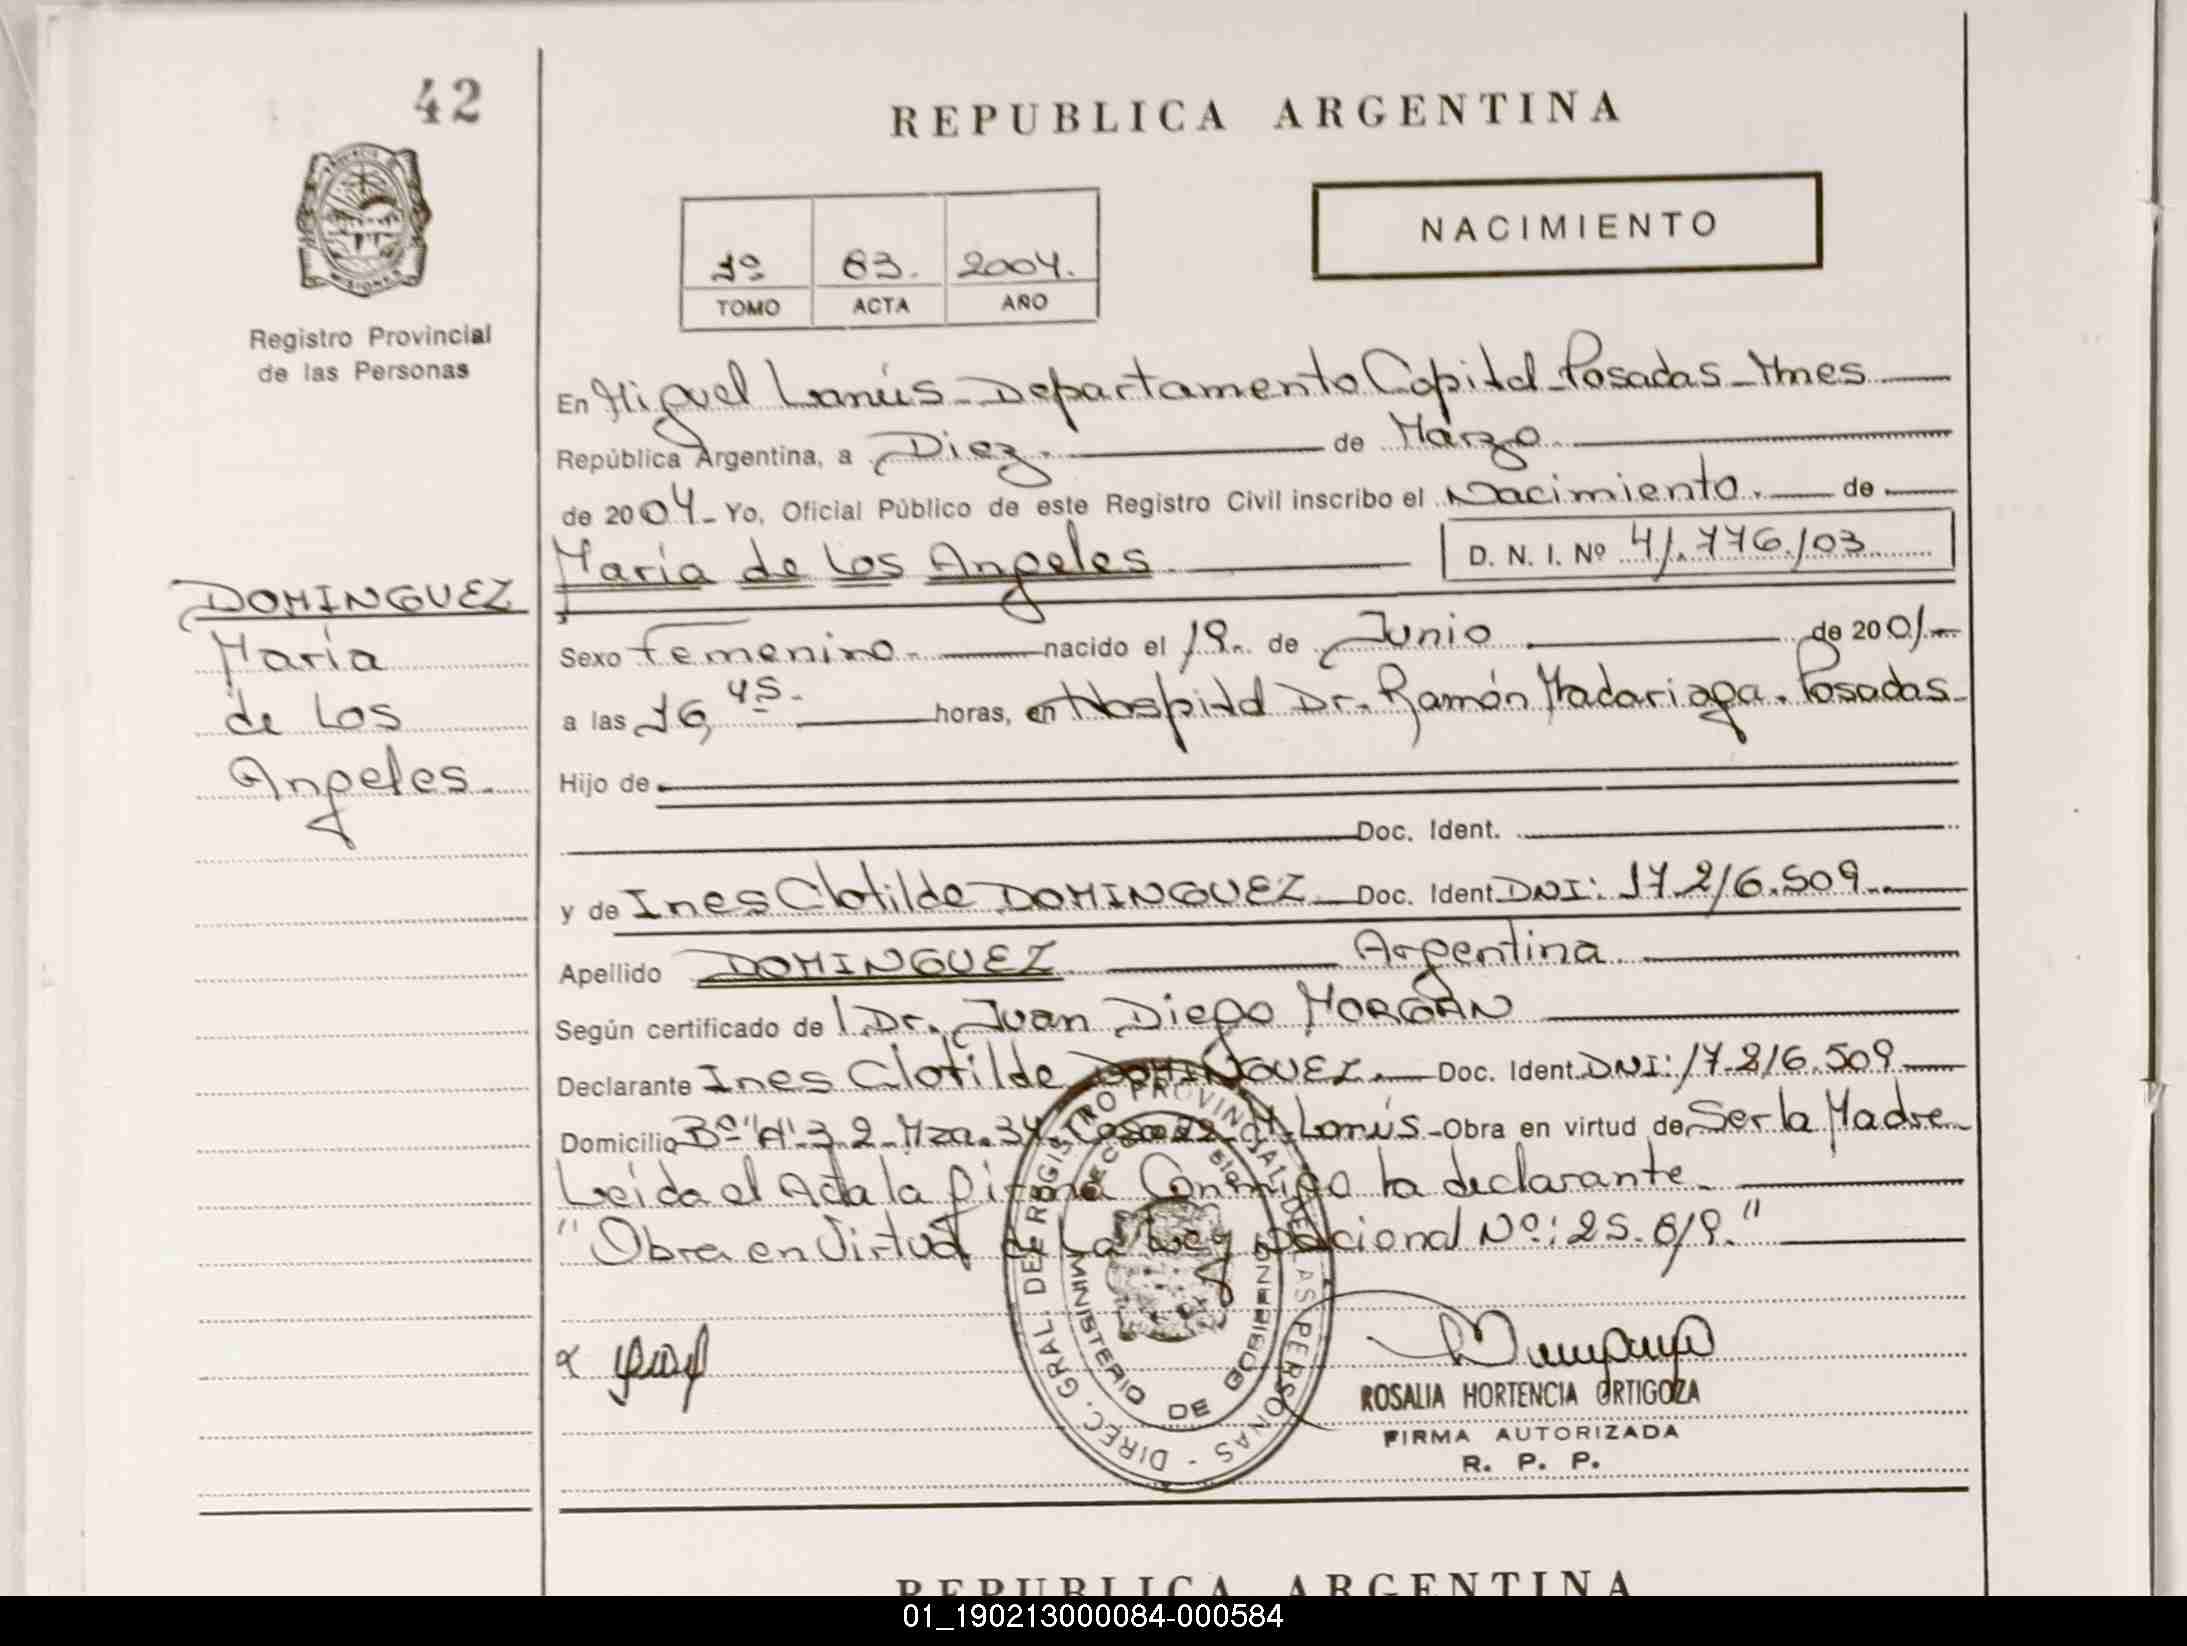 42
REPUBLICA ARGENTINA
NACIMIENTO
1º 83. 2004.
TOMO ACTA AÑO
Registro Provincial
de las Personas
En Miguel Lanús - Departamento Capital - Posadas - Mnes
República Argentina, a Diez. de Marzo
de 2004 - Yo, Oficial Público de este Registro Civil inscribo el Nacimiento. de
María de los Angeles D. N. I. Nº 41.776.103
DOMINGUEZ
María
de los
Angeles.
Sexo Femenino. nacido el 19. de Junio de 2001.
a las 16,45. horas, en Hospital Dr. Ramón Madariaga. Posadas
Hijo de
Doc. Ident.
y de Ines Clotilde DOMINGUEZ Doc. Ident. DNI: 17.216.509
Apellido DOMINGUEZ Argentina
Según certificado de Dr. Juan Diego MORGAN
Declarante Ines Clotilde DOMINGUEZ. Doc. Ident. DNI: 17.216.509
Domicilio Bº "A" 3.2 - Mza. 34 Casa - M. Lanús - Obra en virtud de Ser la Madre
Leída el Acta la firma Conmigo la declarante
"Obra en Virtud de la Ley Nacional Nº: 25.819."
DIREC. GRAL. DEL REGISTRO PROVINCIAL DE LAS PERSONAS
MINISTERIO DE GOBIERNO
ROSALIA HORTENCIA ORTIGOZA
FIRMA AUTORIZADA
R. P. P.
REPUBLICA ARGENTINA
01_190213000084-000584